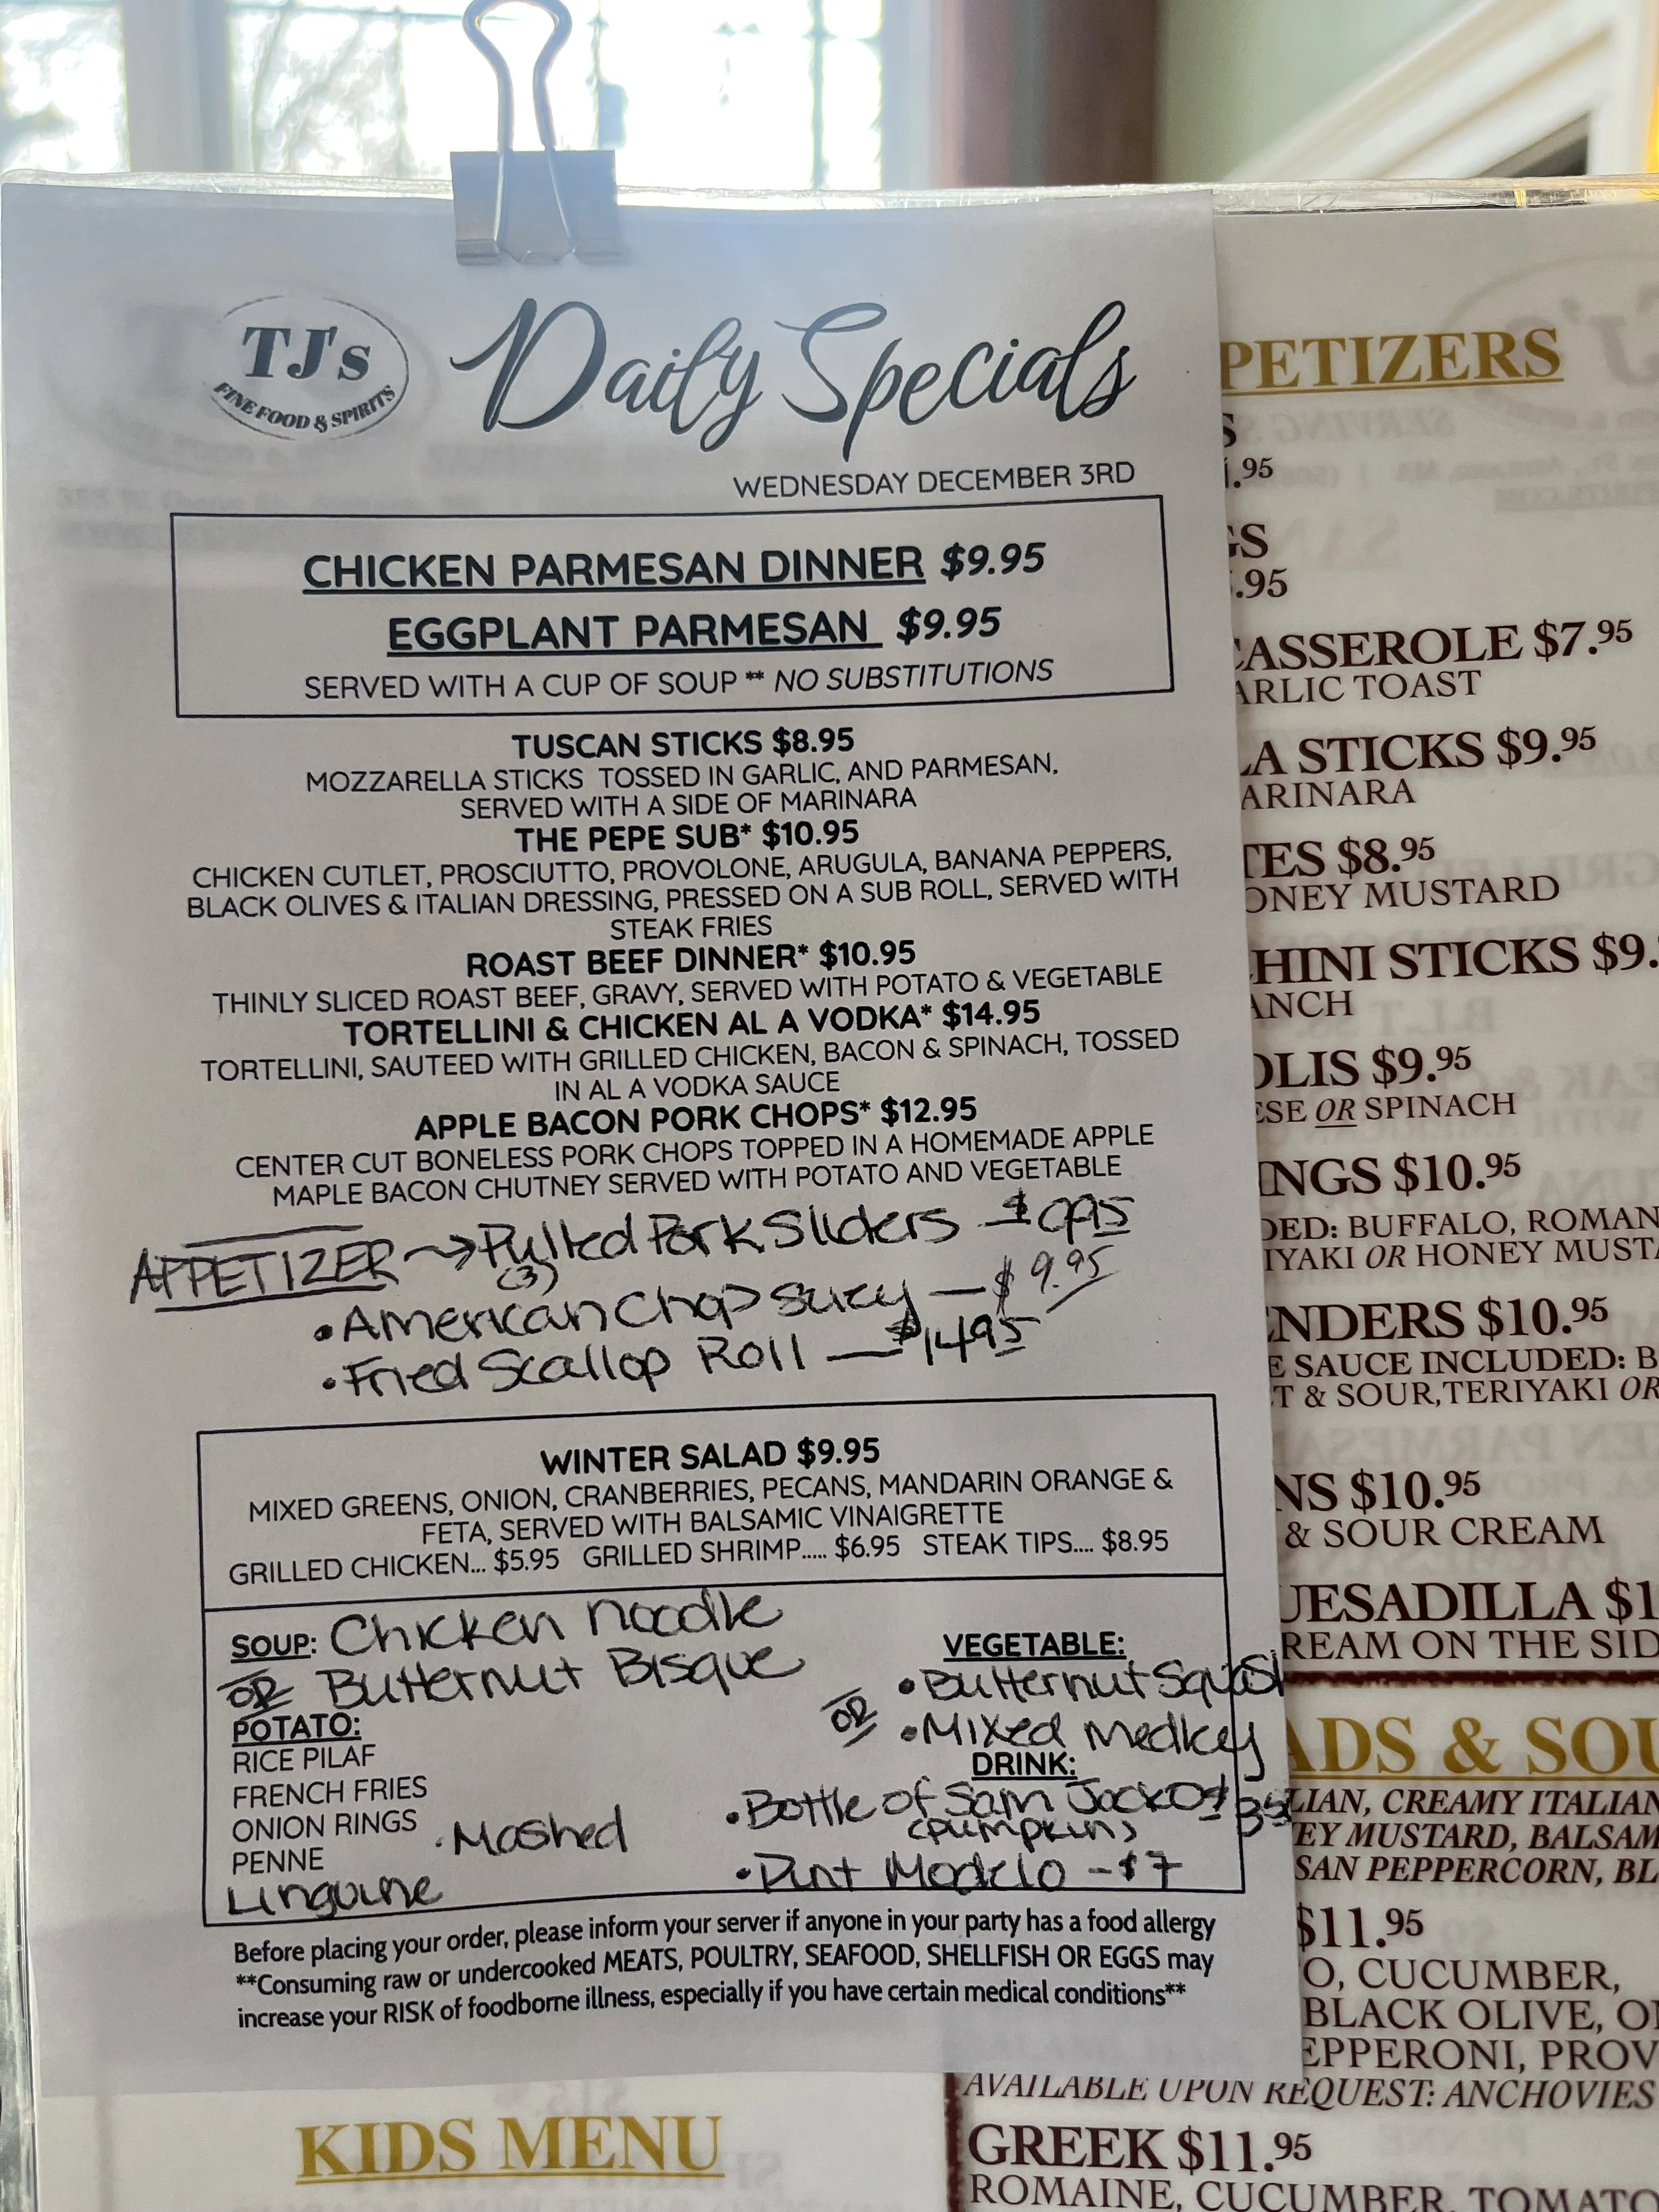 TJ's
FINE FOOD & SPIRITS
Daily Specials
WEDNESDAY DECEMBER 3RD
CHICKEN PARMESAN DINNER $9.95
EGGPLANT PARMESAN $9.95
SERVED WITH A CUP OF SOUP ** NO SUBSTITUTIONS
TUSCAN STICKS $8.95
MOZZARELLA STICKS TOSSED IN GARLIC, AND PARMESAN,
SERVED WITH A SIDE OF MARINARA
THE PEPE SUB* $10.95
CHICKEN CUTLET, PROSCIUTTO, PROVOLONE, ARUGULA, BANANA PEPPERS,
BLACK OLIVES & ITALIAN DRESSING, PRESSED ON A SUB ROLL, SERVED WITH
STEAK FRIES
ROAST BEEF DINNER* $10.95
THINLY SLICED ROAST BEEF, GRAVY, SERVED WITH POTATO & VEGETABLE
TORTELLINI & CHICKEN AL A VODKA* $14.95
TORTELLINI, SAUTEED WITH GRILLED CHICKEN, BACON & SPINACH, TOSSED
IN AL A VODKA SAUCE
APPLE BACON PORK CHOPS* $12.95
CENTER CUT BONELESS PORK CHOPS TOPPED IN A HOMEMADE APPLE
MAPLE BACON CHUTNEY SERVED WITH POTATO AND VEGETABLE
APPETIZER → Pulled Pork Sliders
(3)
• American Chop Suey — $9.95
• Fried Scallop Roll — $14.95
WINTER SALAD $9.95
MIXED GREENS, ONION, CRANBERRIES, PECANS, MANDARIN ORANGE &
FETA, SERVED WITH BALSAMIC VINAIGRETTE
GRILLED CHICKEN... $5.95 GRILLED SHRIMP..... $6.95 STEAK TIPS.... $8.95
SOUP: Chicken Noodle
OR Butternut Bisque
POTATO:
RICE PILAF
FRENCH FRIES
ONION RINGS
• Mashed
PENNE
Linguine
VEGETABLE:
• Butternut Squash
OR
• Mixed Medley
DRINK:
• Bottle of Sam Jacko
(Pumpkin)
• Pint Modelo - $7
Before placing your order, please inform your server if anyone in your party has a food allergy
**Consuming raw or undercooked MEATS, POULTRY, SEAFOOD, SHELLFISH OR EGGS may
increase your RISK of foodborne illness, especially if you have certain medical conditions**
KIDS MENU
PETIZERS
S
.95
GS
.95
CASSEROLE $7.95
ARLIC TOAST
LA STICKS $9.95
ARINARA
TES $8.95
ONEY MUSTARD
HINI STICKS $9.
ANCH
OLIS $9.95
ESE OR SPINACH
NGS $10.95
DED: BUFFALO, ROMAN
IYAKI OR HONEY MUSTA
ENDERS $10.95
E SAUCE INCLUDED: B
T & SOUR, TERIYAKI OR
NS $10.95
& SOUR CREAM
UESADILLA $1
REAM ON THE SID
ADS & SOU
LIAN, CREAMY ITALIAN
EY MUSTARD, BALSAM
SAN PEPPERCORN, BL
$11.95
O, CUCUMBER,
BLACK OLIVE, O
EPPERONI, PROV
AVAILABLE UPON REQUEST: ANCHOVIES
GREEK $11.95
ROMAINE, CUCUMBER, TOMATO